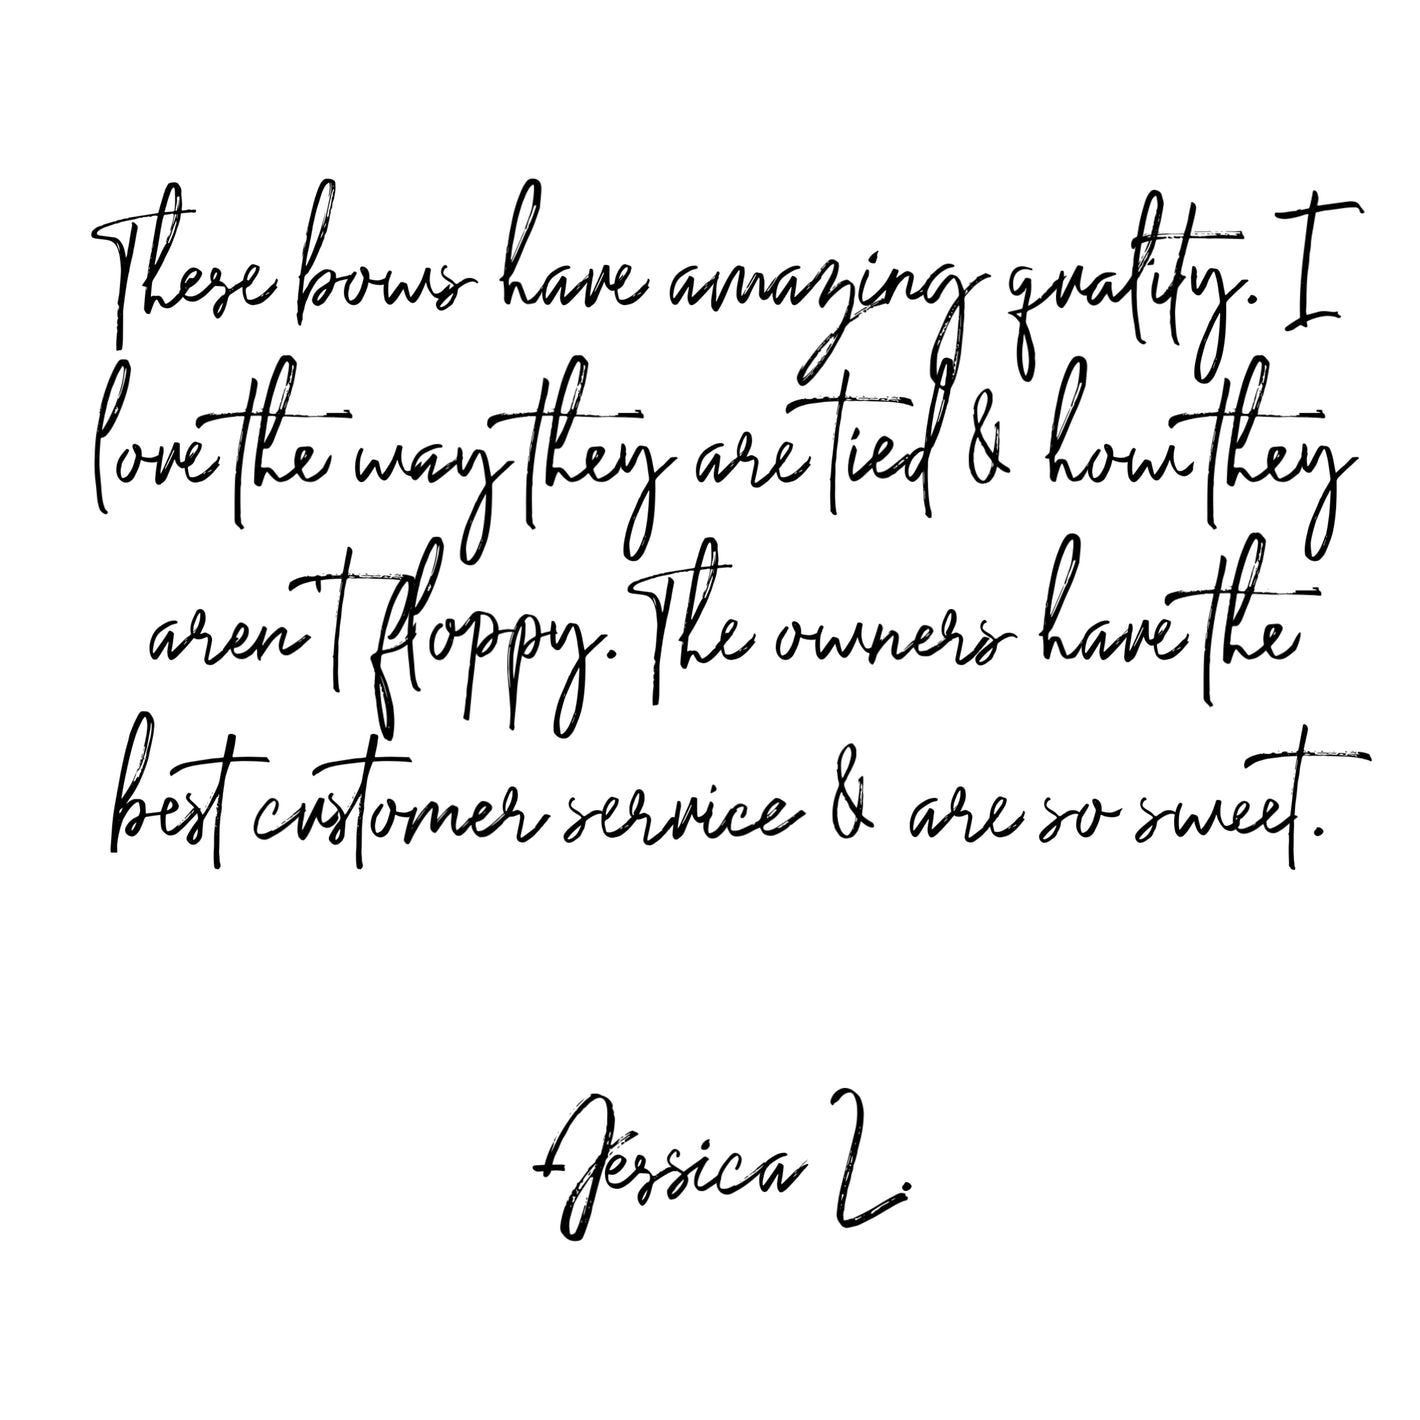 These bows have amazing quality. I
love the way they are tied & how they
aren't floppy. The owners have the
best customer service & are so sweet.
-Jessica L.